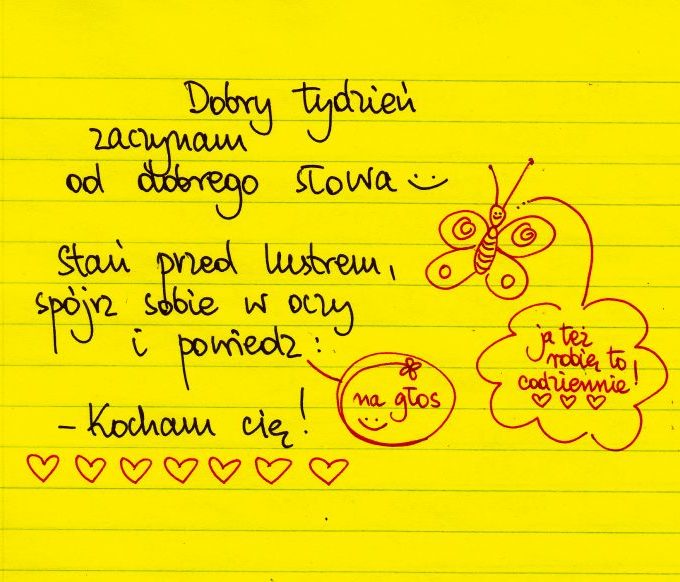 Dobry tydzień
zaczynam
od dobrego słowa
Stań przed lustrem,
spójrz sobie w oczy
i powiedz:
na głos
- Kocham cię!
ja też
robię to
codziennie!